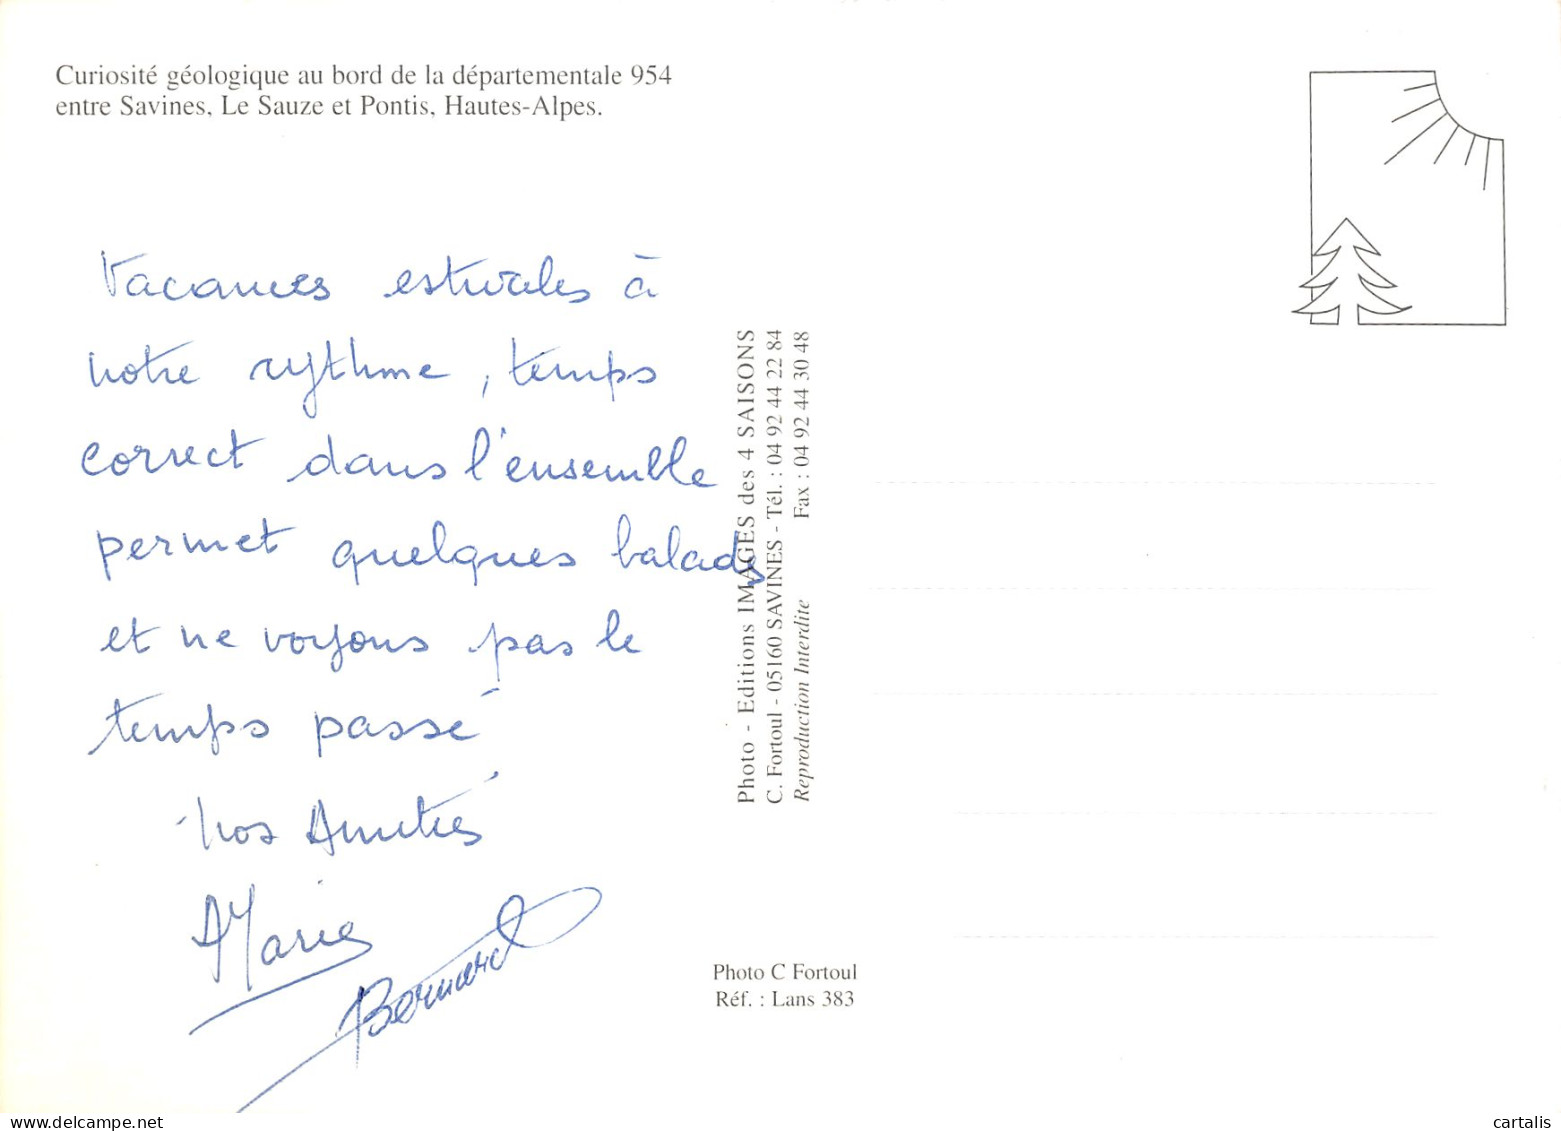 Curiosité géologique au bord de la départementale 954
entre Savines, Le Sauze et Pontis, Hautes-Alpes.
Vacances estivales à
notre rythme, temps
correct dans l'ensemble
permet quelques balads
et ne voyons pas le
temps passé
Nos Amitiés
Marie
Bernard
Photo - Editions IMAGES des 4 SAISONS
C. Fortoul - 05160 SAVINES - Tél. : 04 92 44 22 84
Reproduction Interdite Fax : 04 92 44 30 48
Photo C Fortoul
Réf. : Lans 383
delcampe.net
cartalis